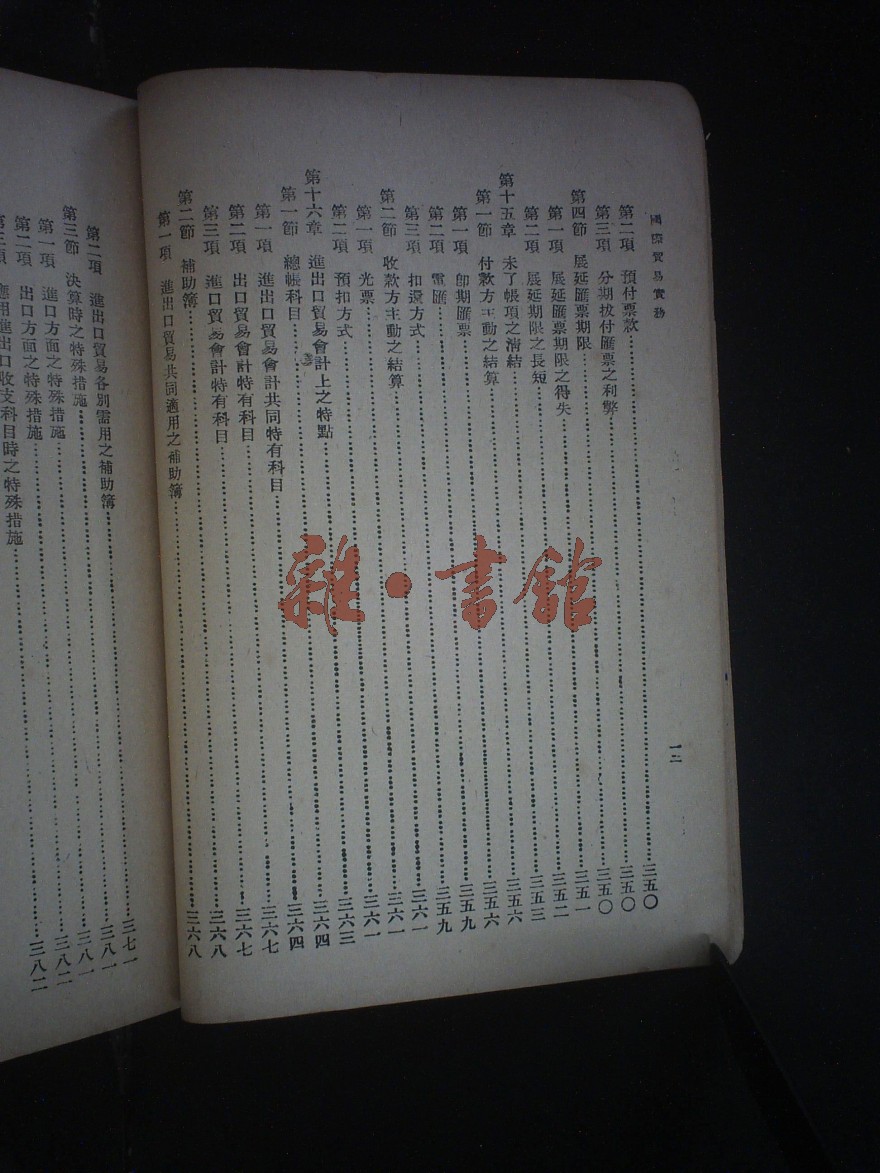 國際貿易實務
一二
第二項 預付票款……三五〇
第三項 分期拔付匯票之利弊……三五〇
第四節 展延匯票期限……三五一
第一項 展延匯票期限之得失……三五二
第二項 展延期限之長短……三五三
第十五章 未了帳項之清結……三五六
第一節 付款方主動之結算……三五六
第一項 卽期匯票……三五九
第二項 電匯……三五九
第三項 扣還方式……三六一
第二節 收款方主動之結算……三六一
第一項 光票……三六一
第二項 預扣方式……三六三
第十六章 進出口貿易會計上之特點……三六四
第一節 總帳科目……三六四
第一項 進出口貿易會計共同特有科目……三六七
第二項 出口貿易會計特有科目……三六七
第三項 進口貿易會計特有科目……三六八
第二節 補助簿……三六八
第一項 進出口貿易共同適用之補助簿
第二項 進出口貿易各別需用之補助簿……三七一
第三節 決算時之特殊措施……三八一
第一項 進口方面之特殊措施……三八一
第二項 出口方面之特殊措施……三八二
第三項 應用進出口收支科目時之特殊措施……三八二
雜·書館